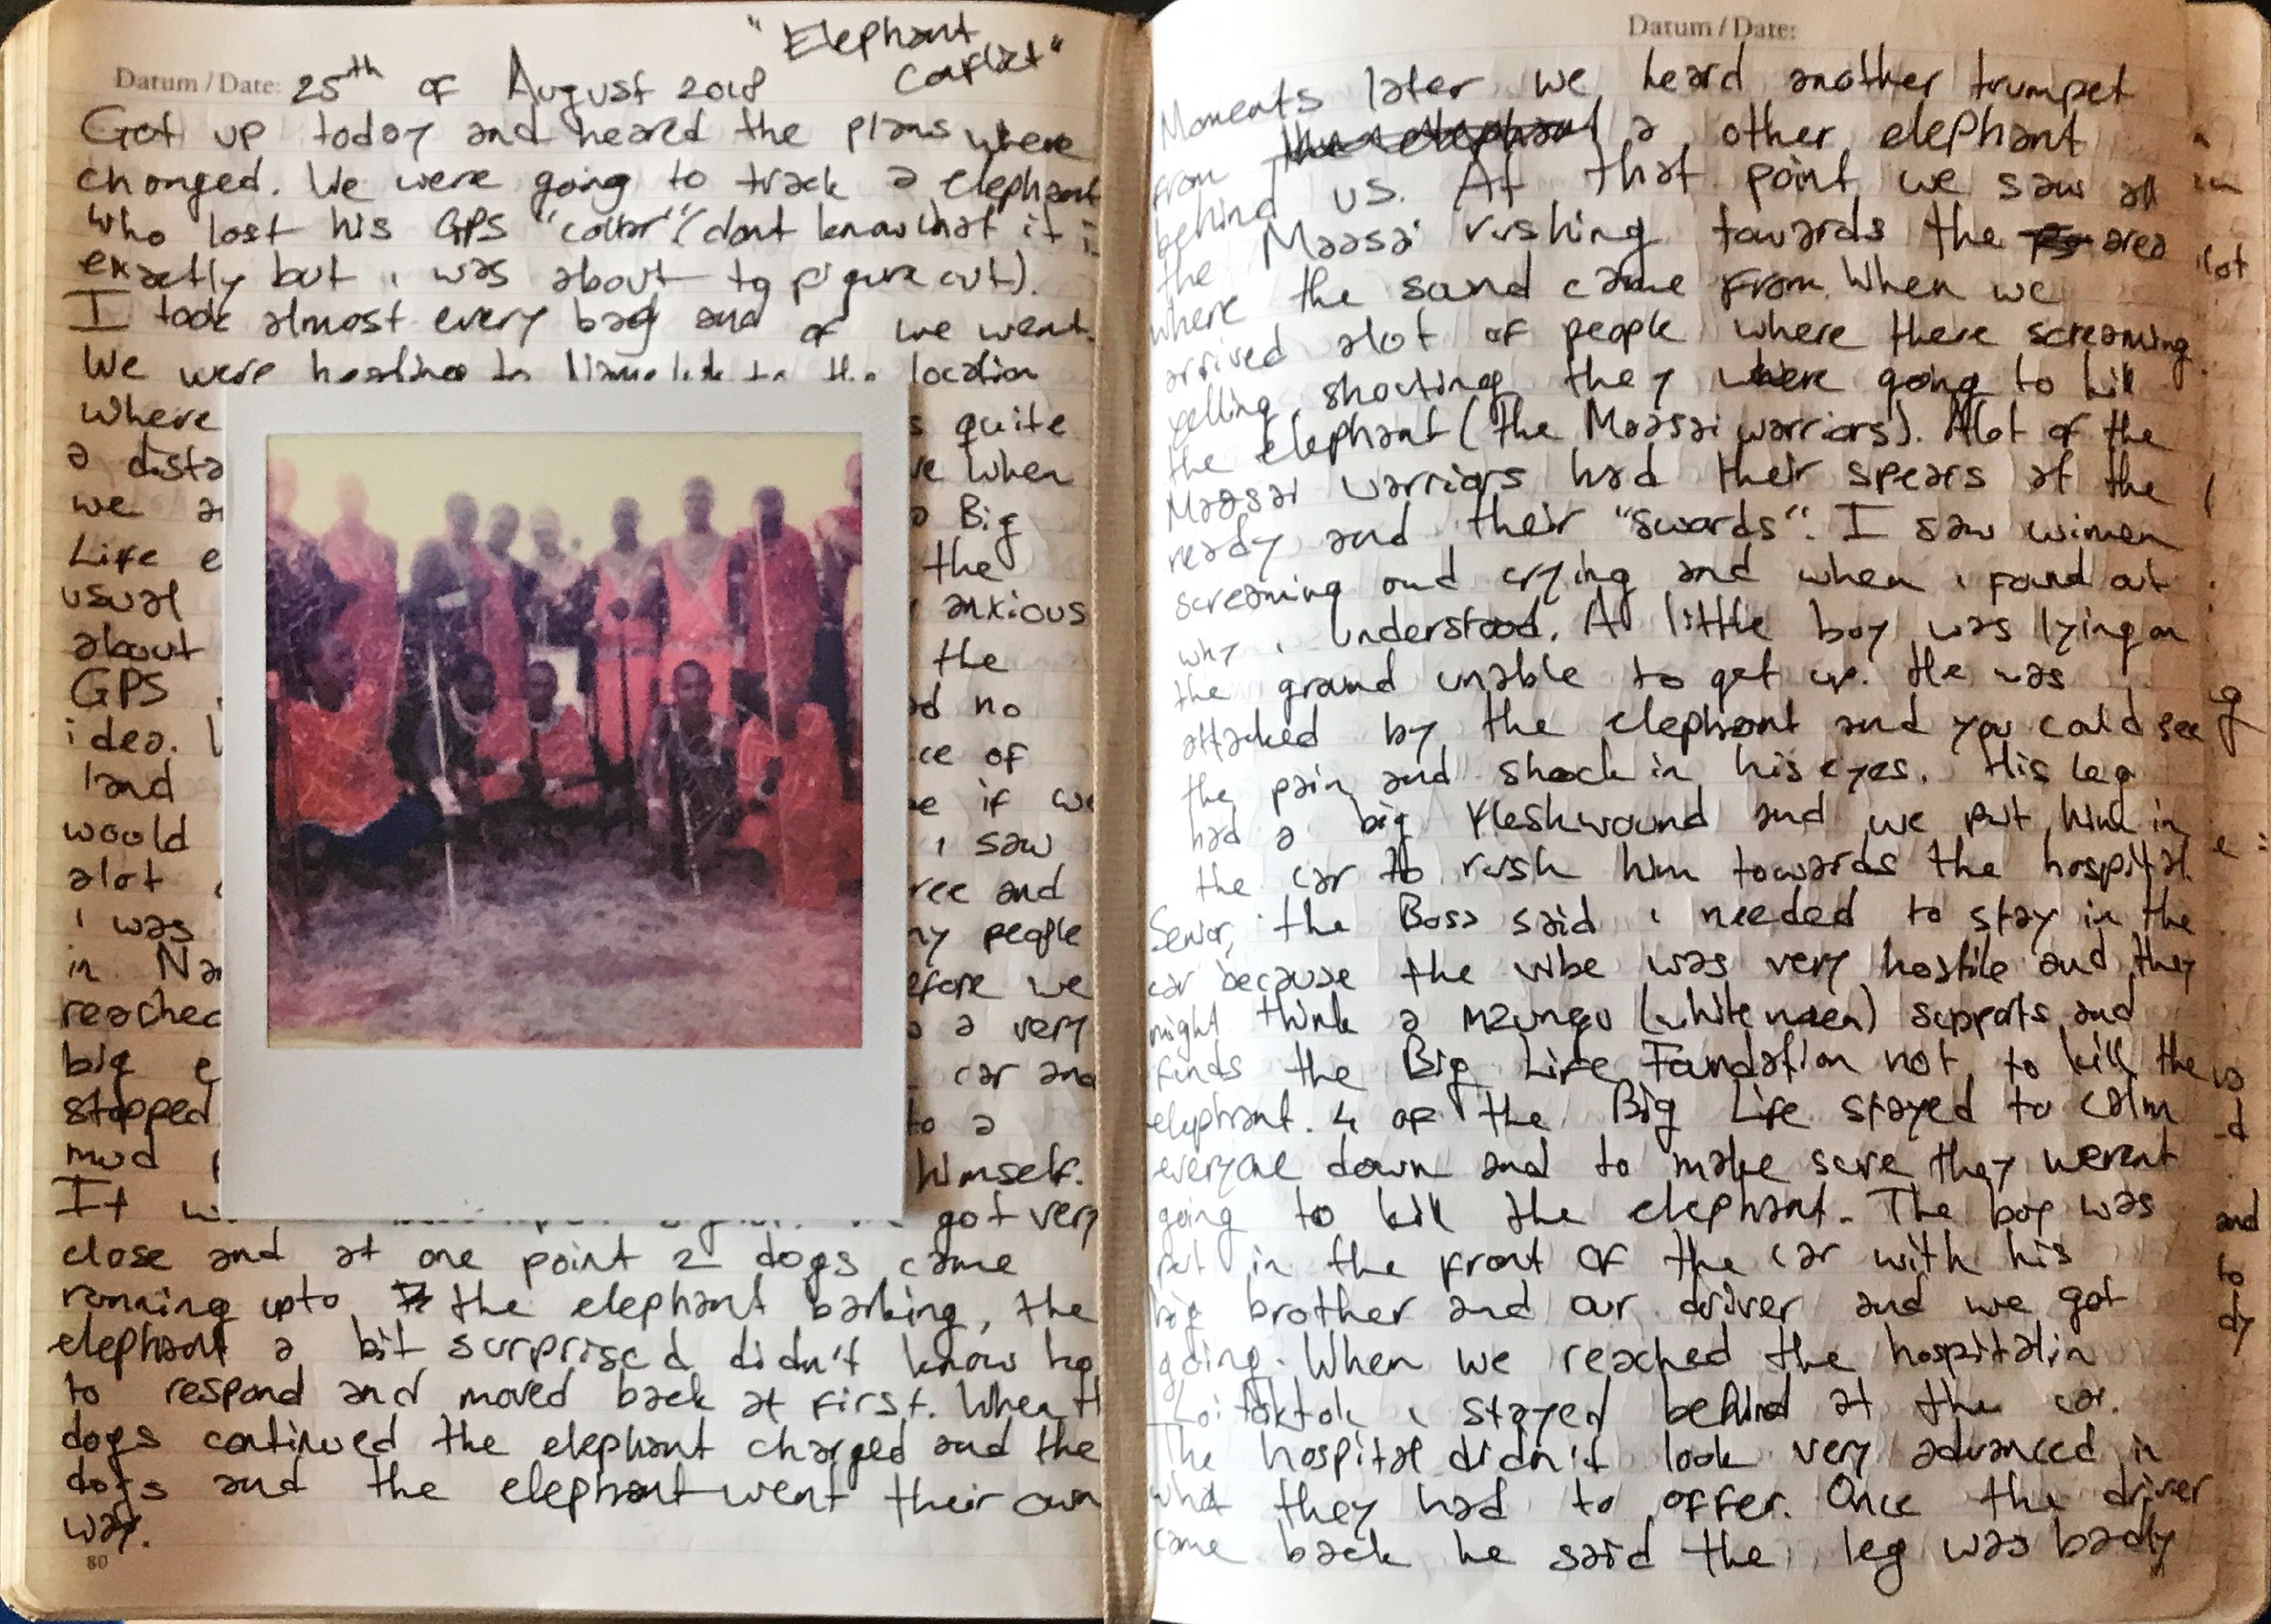 "Elephant
Conflict"
Datum / Date: 25th of August 2018
Got up today and heared the plans where
changed. We were going to track a elephant
who lost his GPS "collar" (dont know what it i
exactly but i was about to figure out).
I took almost every bag and of we went.
We were location
where s quite
a dista ve when
we a Big
Life e the
usual anxious
about the
GPS no
idea. ce of
land if we
would i saw
alot ree and
i was ny people
in Na efore we
reached a very
big e car and
stopped to a
mud himself.
It got very
close and at one point 2 dogs came
running upto the elephant barking, the
elephant a bit surprised didn't know ho
to respond and moved back at first. When th
dogs continued the elephant charged and the
dogs and the elephant went their own
way.
80
Datum / Date:
Moments later we heard another trumpet
from a other elephant
behind us. At that point we saw all
the Maasai rushing towards the area
where the sound came from. When we
arrived alot of people where there screaming
yelling, shouting they where going to kill
the elephant (the Maasai warriors). Alot of the
Maasai warriors had their spears at the
ready and their "swords". I saw wimen
screaming and crying and when i found out
why i understood. A little boy was lying on
the ground unable to get up. He was
attacked by the elephant and you could see
the pain and shock in his eyes. His leg
had a big fleshwound and we put him in
the car to rush him towards the hospital.
Senior, the Boss said i needed to stay in the
car because the vibe was very hostile and they
might think a mzungu (white) supports and
funds the Big Life Foundation not to kill the
elephant. 4 of the Big Life stayed to calm
everyone down and to make sure they werent
going to kill the elephant. The boy was
put in the front of the car with his
big brother and our driver and we got
going. When we reached the hospital in
Loitoktok i stayed behind at the car.
The hospital didn't look very advanced in
what they had to offer. Once the driver
came back he said the leg was badly
and
to
dy